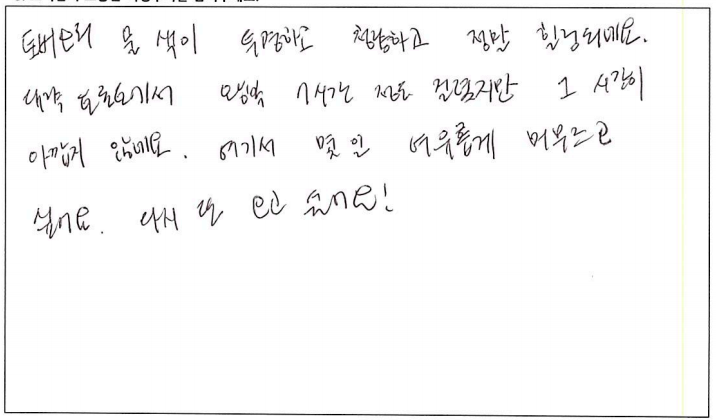 토버모리 물 색이 투명하고 청량하고 정말 힐링되네요.
대략 토론토에서 왕복 7시간 정도 걸렸지만 그 시간이
아깝지 않네요. 여기서 몇 일 여유롭게 머무르고
싶어요. 다시 또 오고 싶어요!